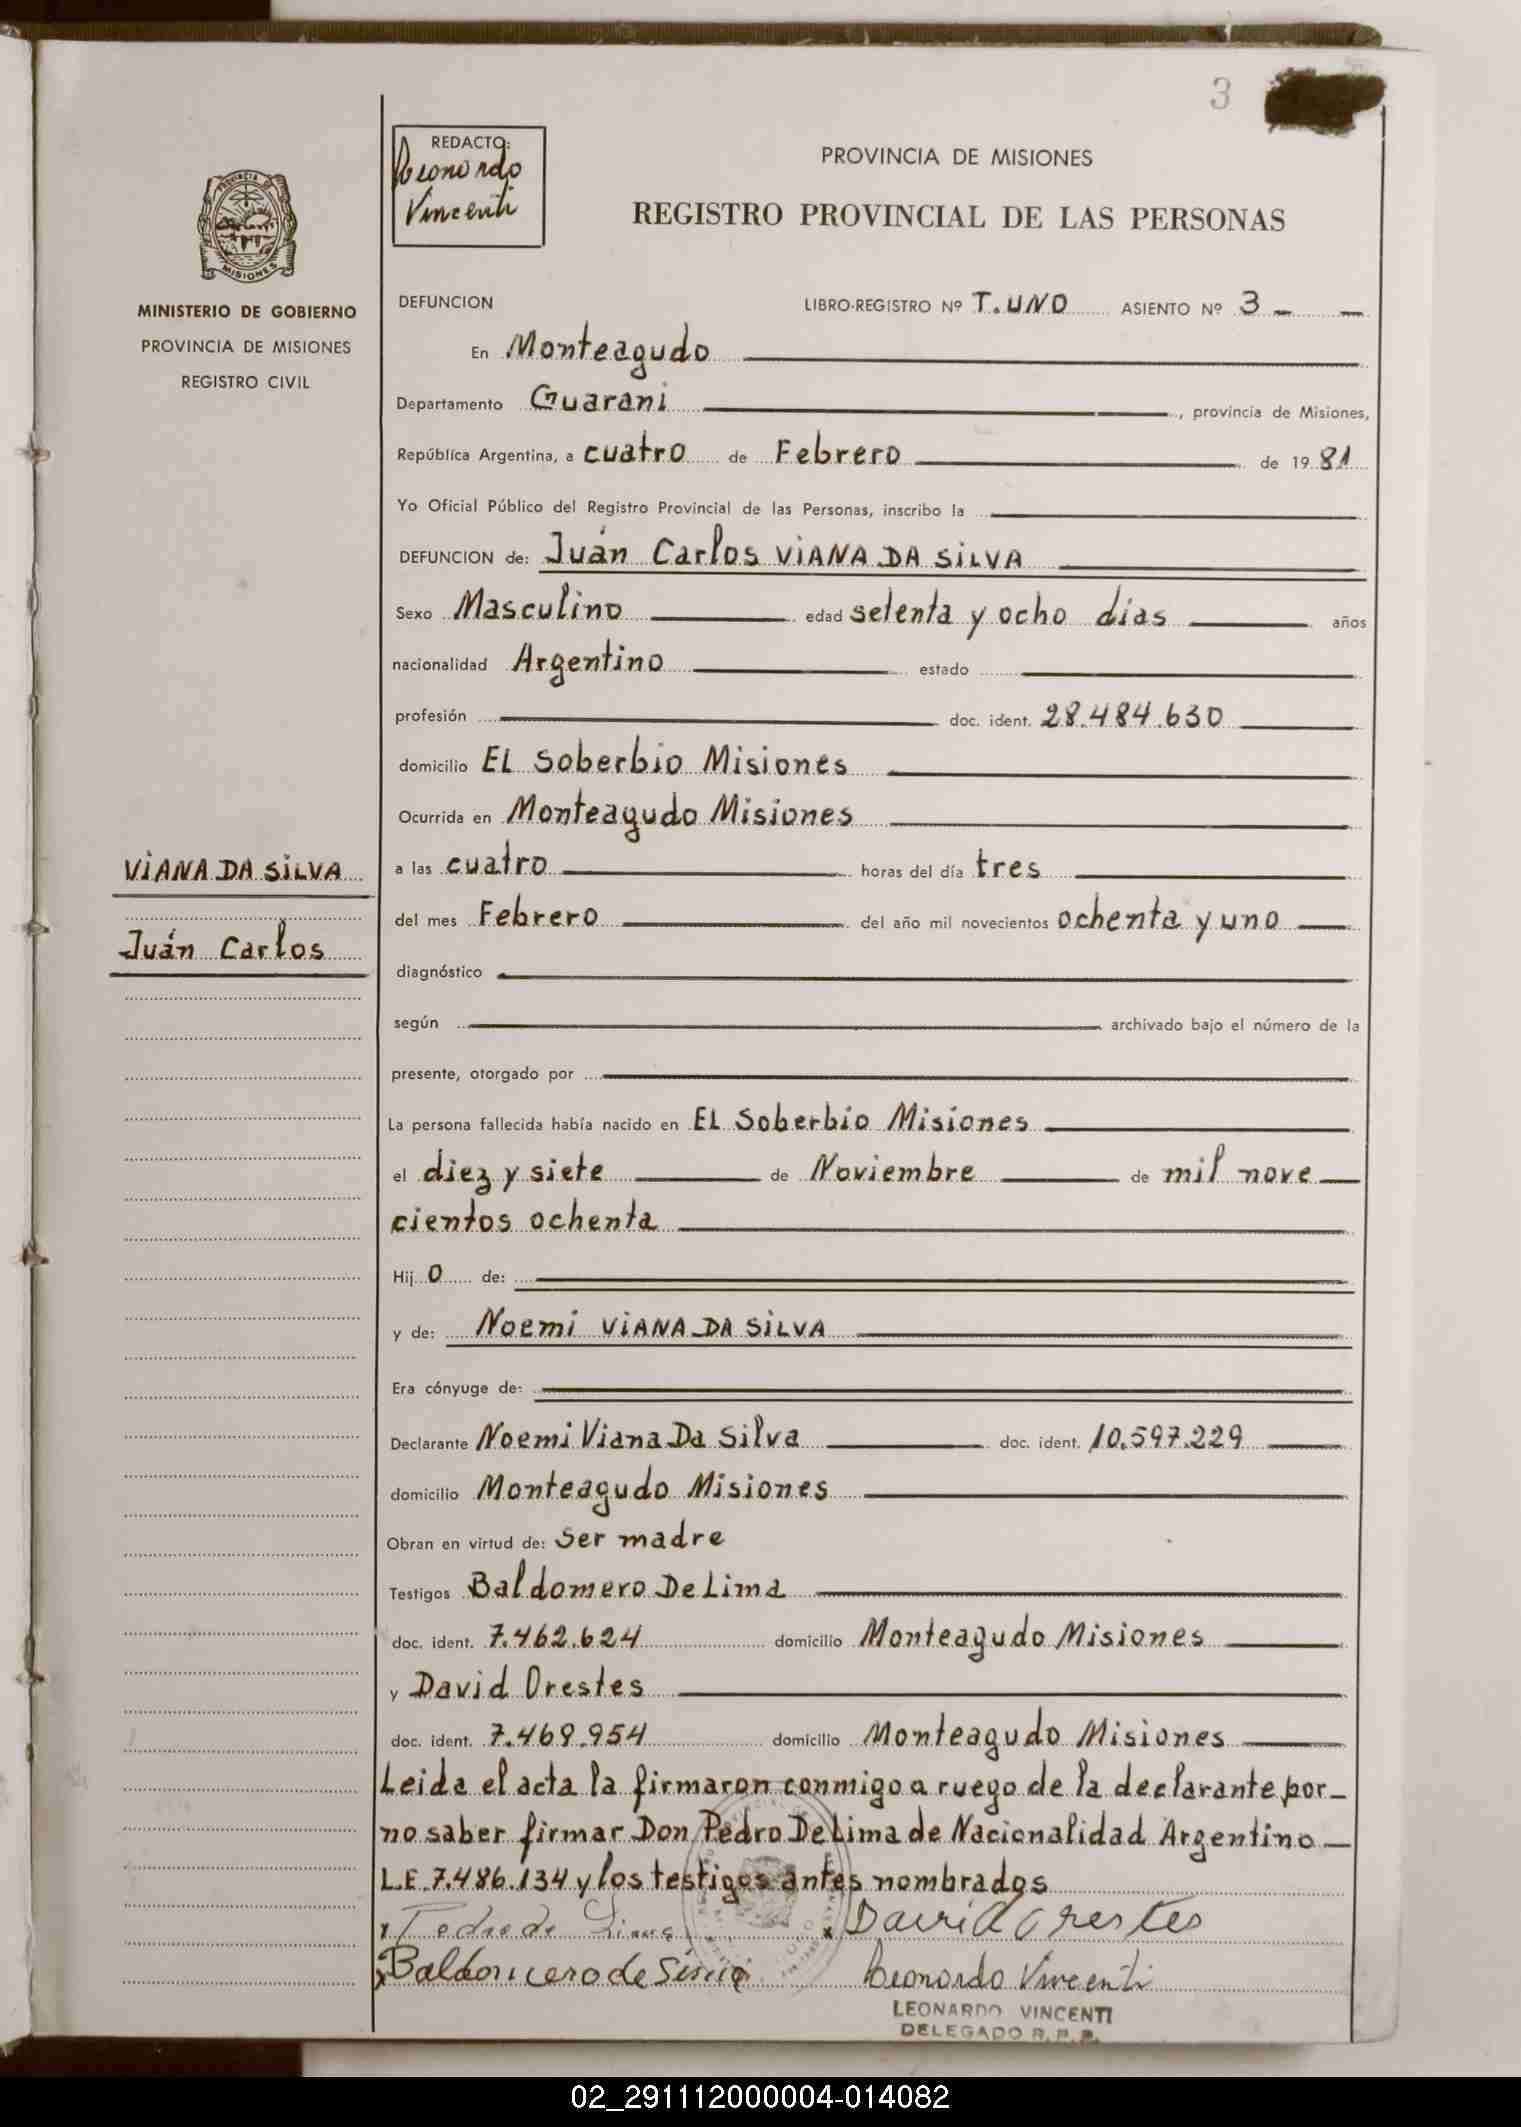 3
REDACTO:
Leonardo
Vincenti
PROVINCIA DE MISIONES
REGISTRO PROVINCIAL DE LAS PERSONAS
PROVINCIA DE
MISIONES
MINISTERIO DE GOBIERNO
PROVINCIA DE MISIONES
REGISTRO CIVIL
DEFUNCION LIBRO-REGISTRO Nº T. UNO ASIENTO Nº 3
En Monteagudo
Departamento Guarani, provincia de Misiones,
República Argentina, a cuatro de Febrero de 1981
Yo Oficial Público del Registro Provincial de las Personas, inscribo la
DEFUNCION de: Juán Carlos VIANA DA SILVA
Sexo Masculino edad setenta y ocho dias años
nacionalidad Argentino estado
profesión doc. ident. 28.484.630
domicilio EL Soberbio Misiones
Ocurrida en Monteagudo Misiones
VIANA DA SILVA
Juán Carlos
a las cuatro horas del día tres
del mes Febrero del año mil novecientos ochenta y uno
diagnóstico
según archivado bajo el número de la
presente, otorgado por
La persona fallecida había nacido en EL Soberbio Misiones
el diez y siete de Noviembre de mil nove
cientos ochenta
Hijo de:
y de: Noemi VIANA DA SILVA
Era cónyuge de:
Declarante Noemi Viana Da Silva doc. ident. 10.597.229
domicilio Monteagudo Misiones
Obran en virtud de: Ser madre
Testigos Baldomero De Lima
doc. ident. 7.462.624 domicilio Monteagudo Misiones
y David Orestes
doc. ident. 7.469.954 domicilio Monteagudo Misiones
Leida el acta la firmaron conmigo a ruego de la declarante por
no saber firmar Don Pedro De Lima de Nacionalidad Argentino
L.E. 7.486.134 y los testigos antes nombrados
x Pedro de Lima x David Orestes
x Baldomero de Lima Leonardo Vincenti
LEONARDO VINCENTI
DELEGADO R. P. P.
02_291112000004-014082